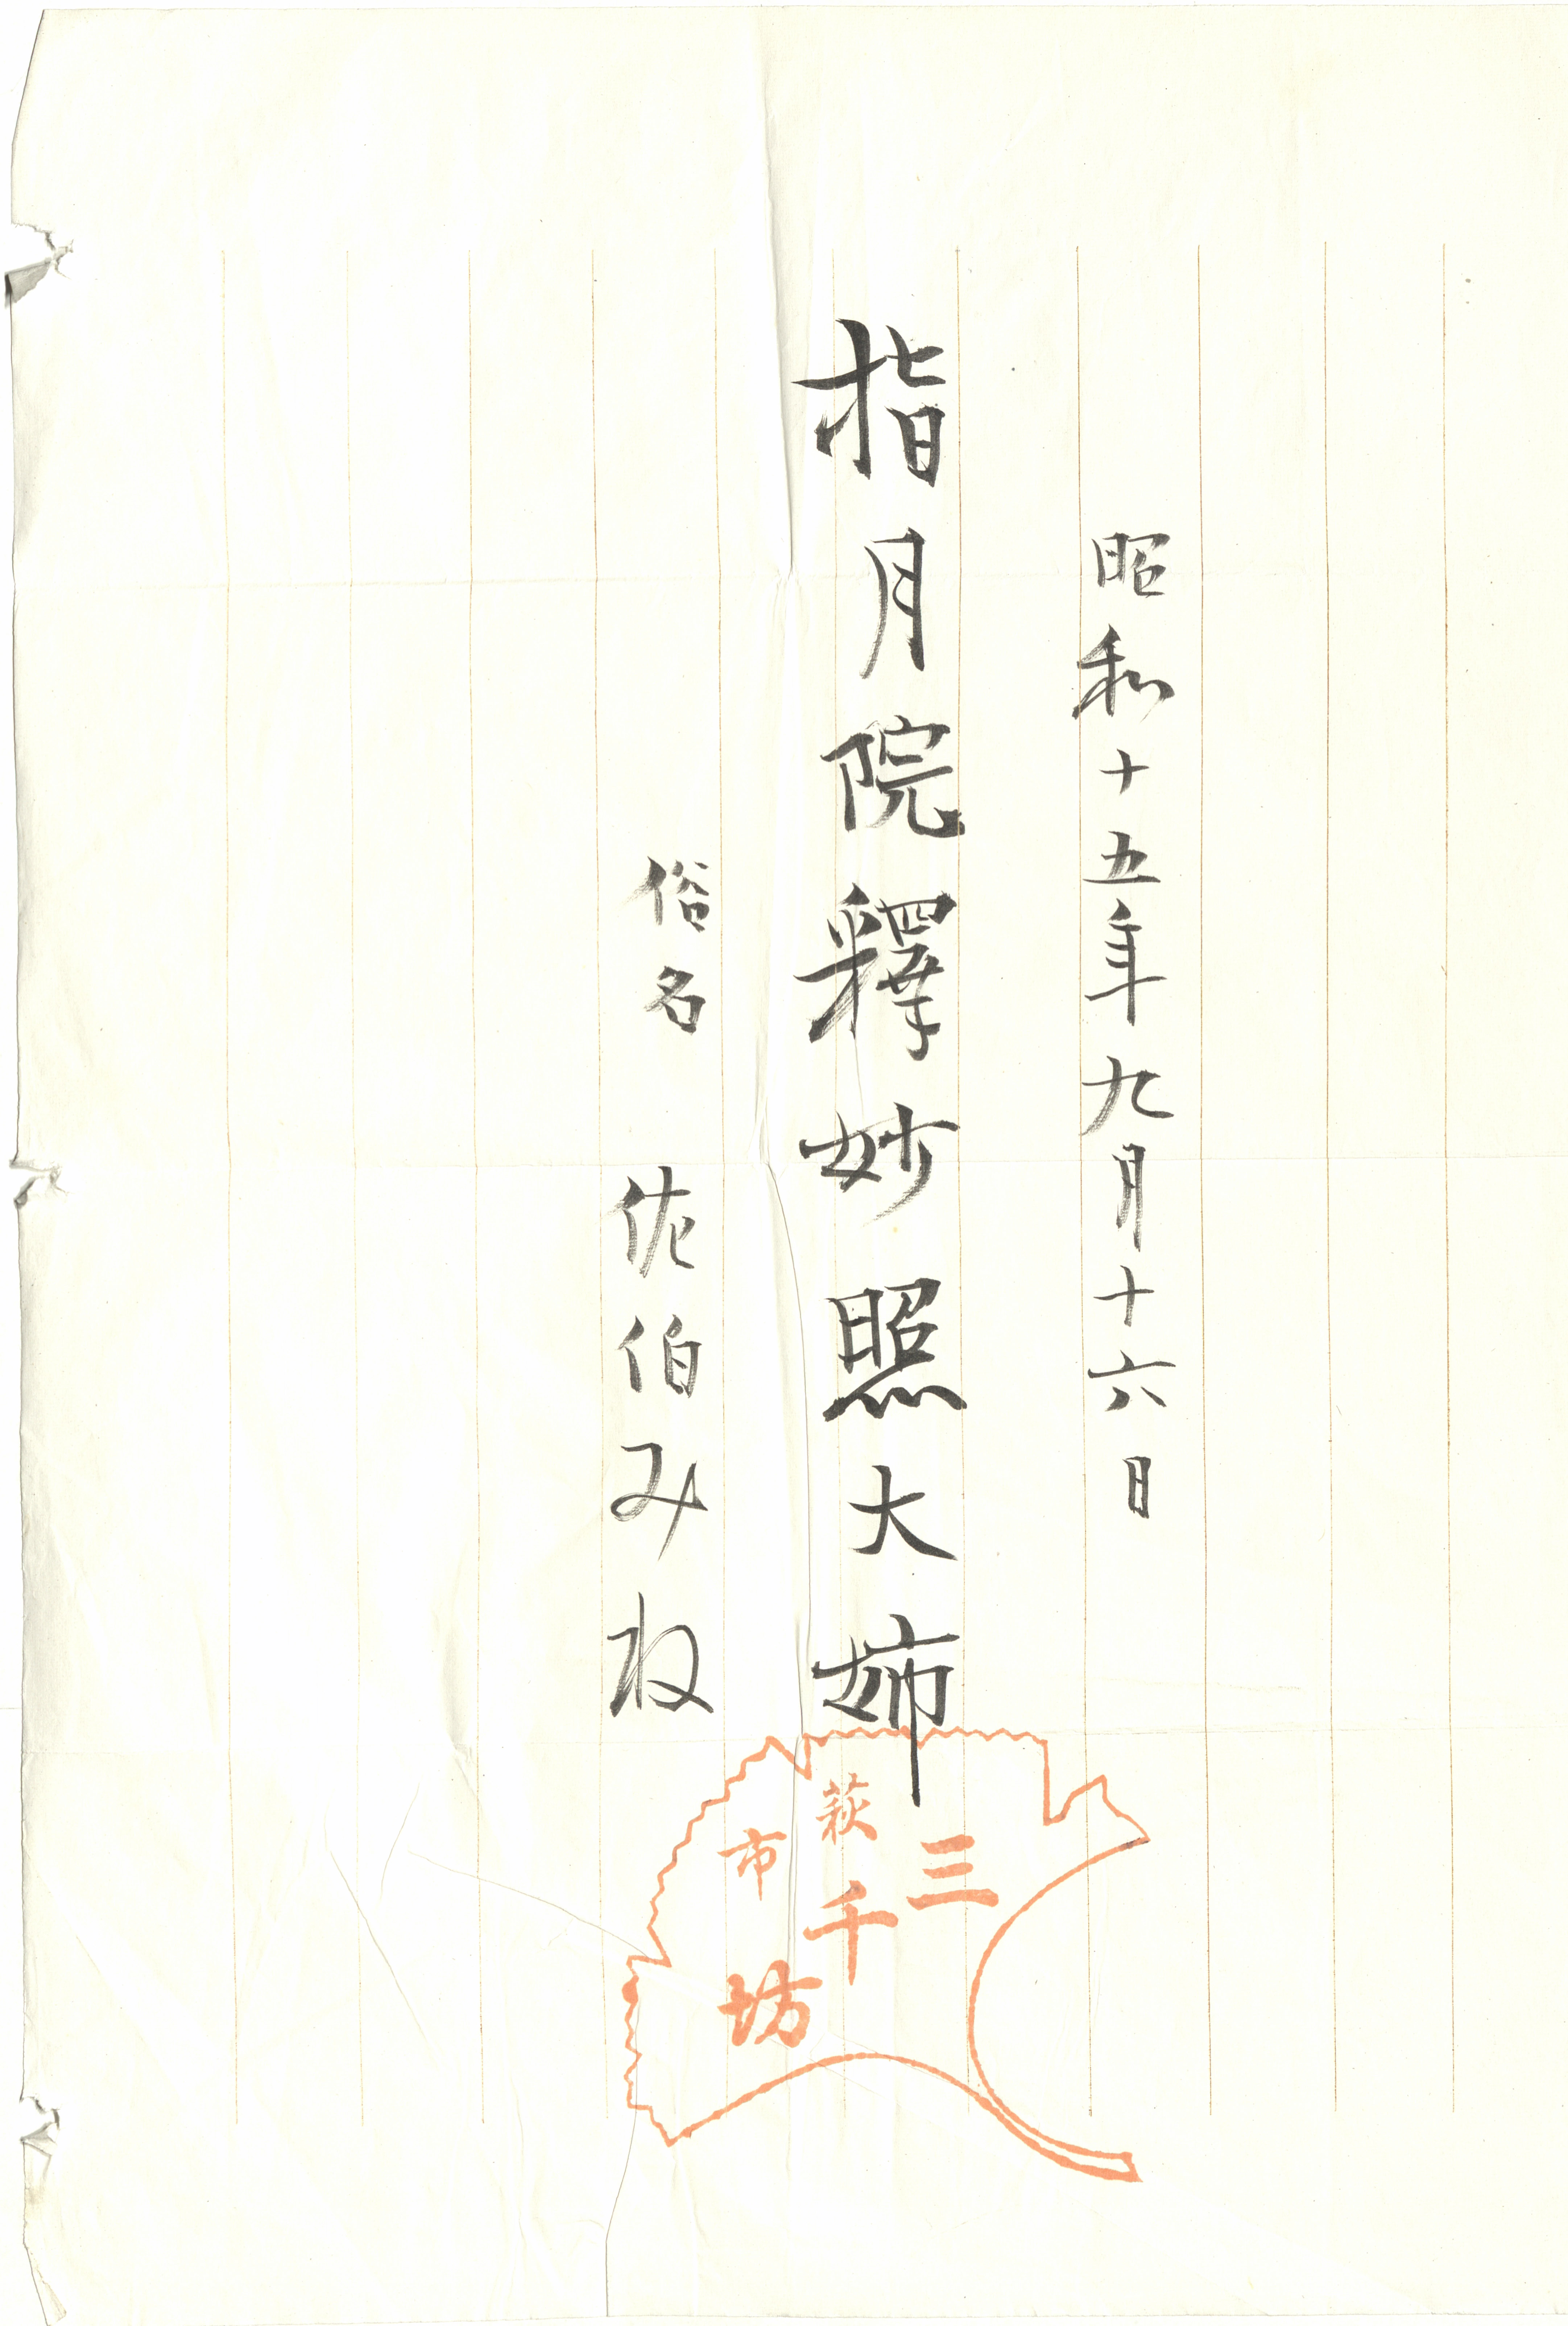 昭和十五年九月十六日
指月院釋妙照大姉
俗名 佐伯みね
三千坊
萩市